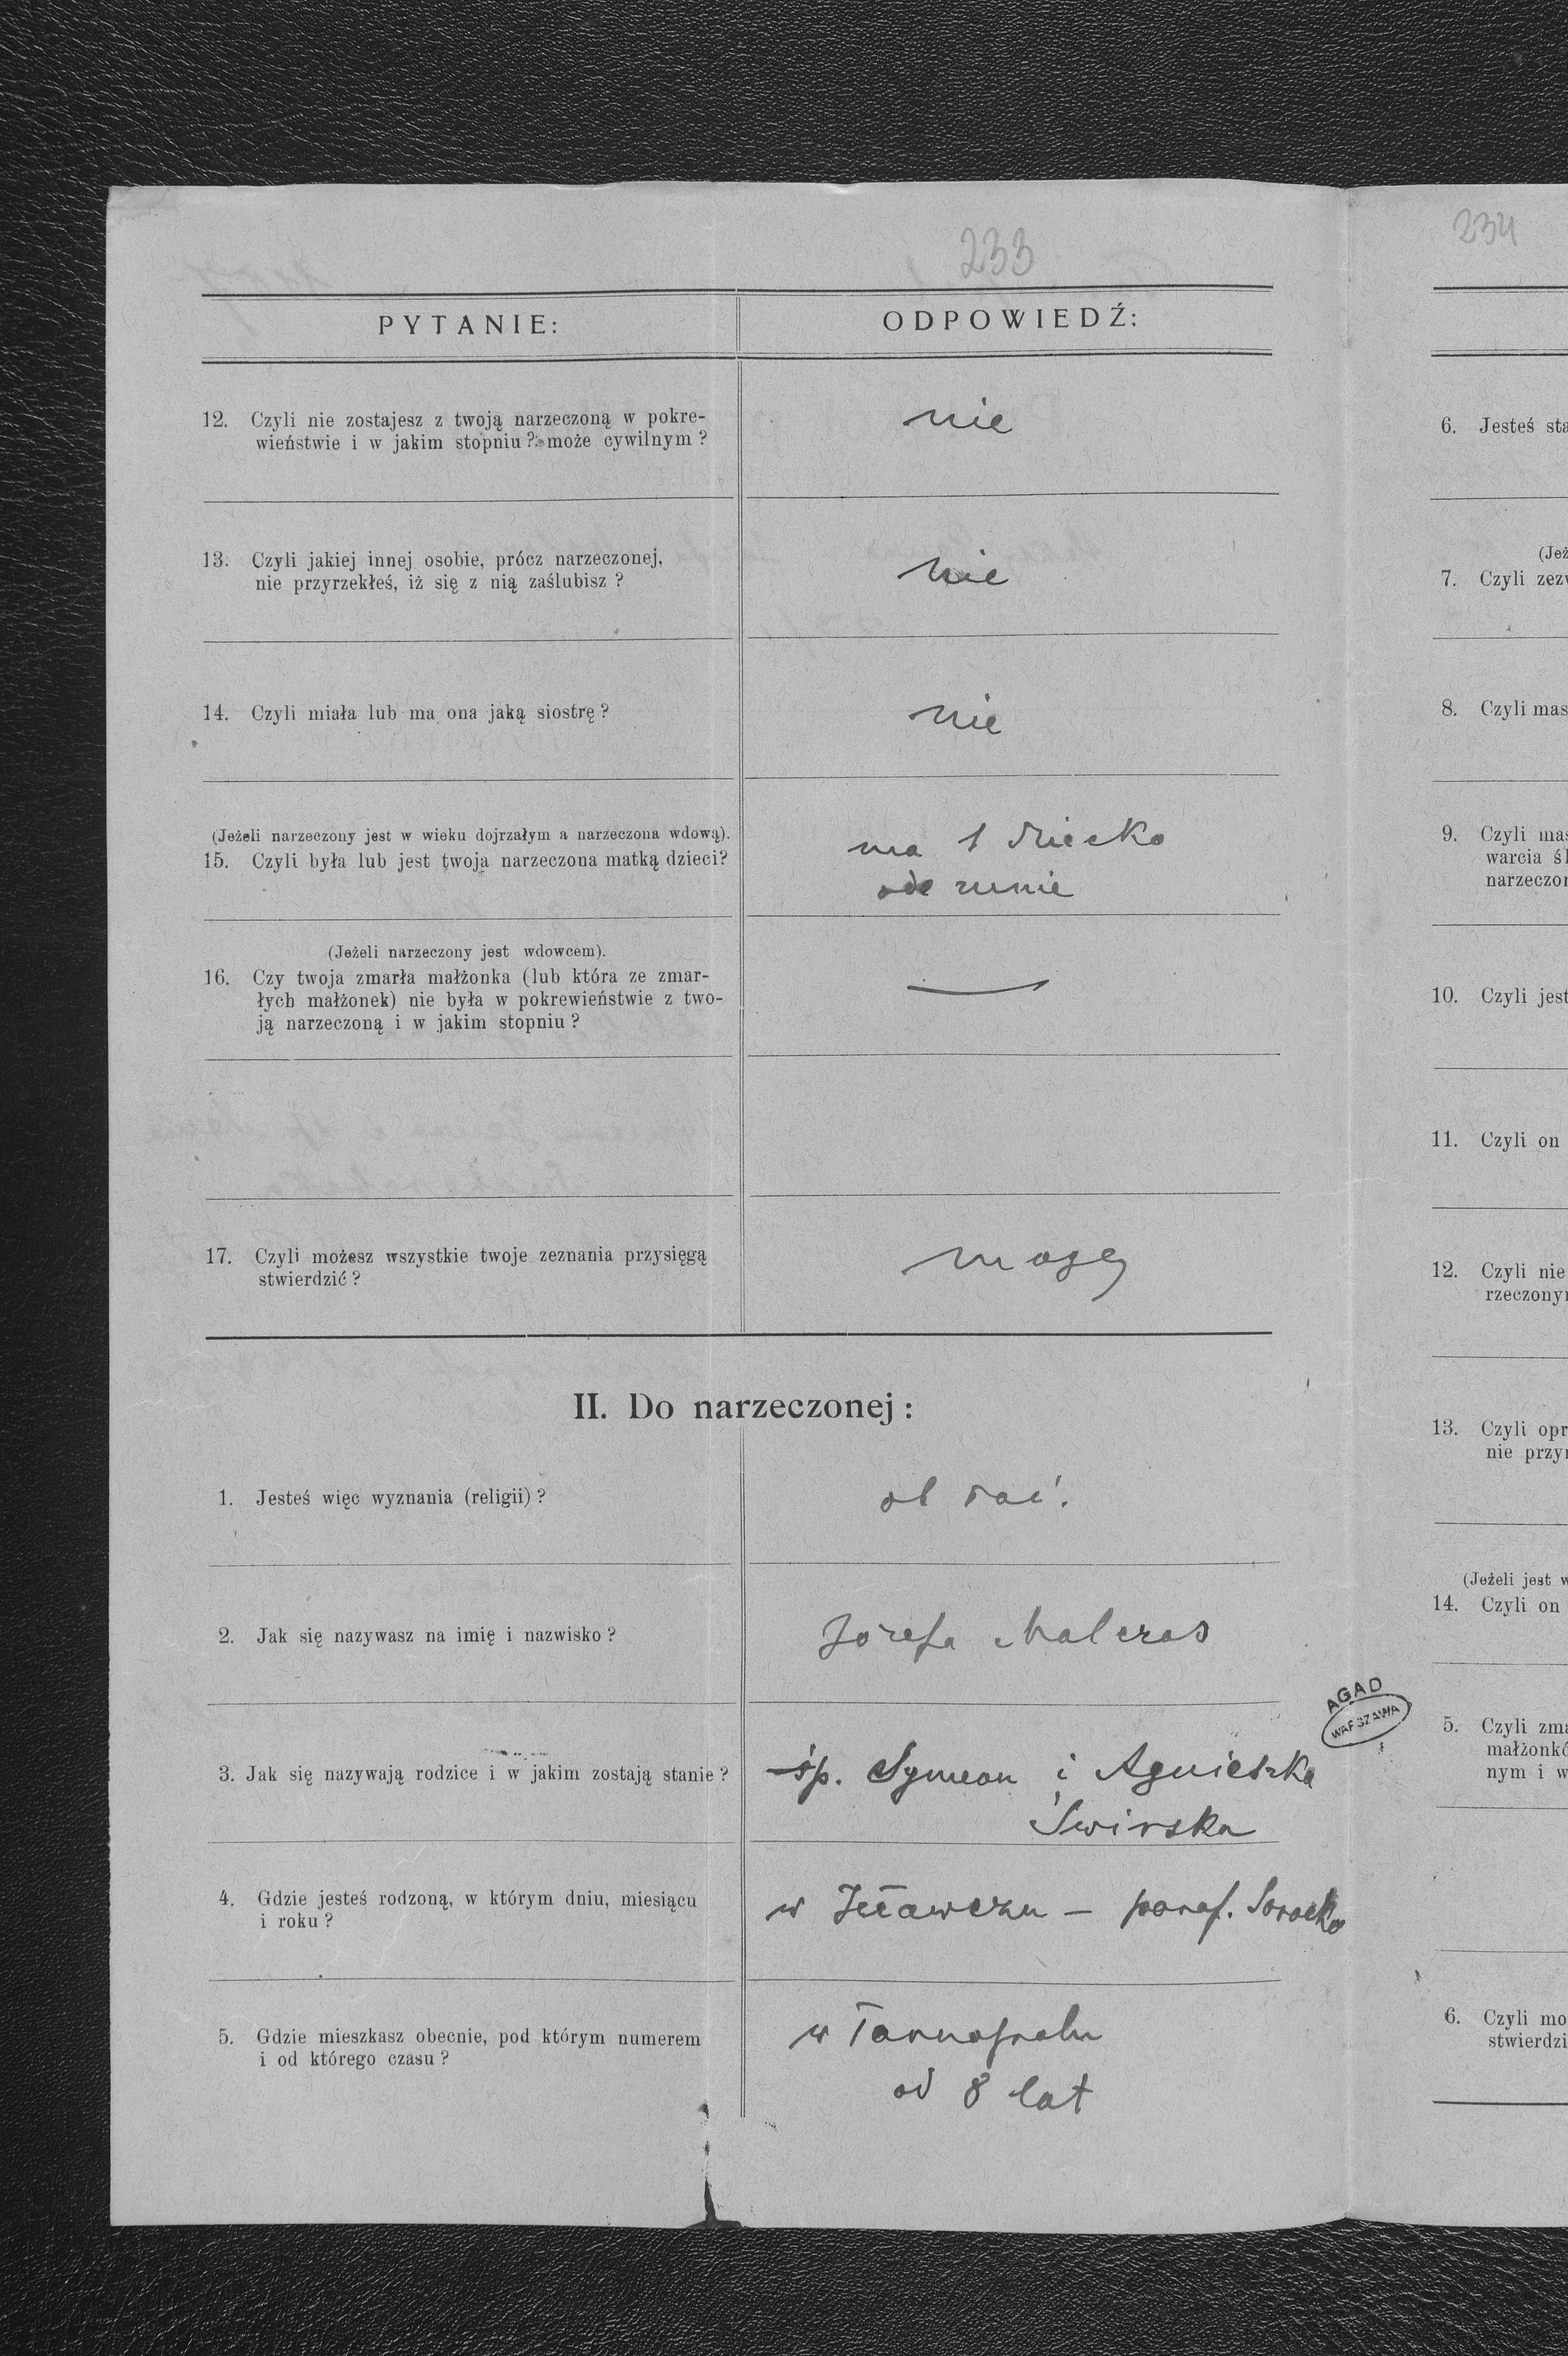 233
PYTANIE:
ODPOWIEDŹ:
12. Czyli nie zostajesz z twoją narzeczoną w pokre-
wieństwie i w jakim stopniu? może cywilnym?
nie
13. Czyli jakiej innej osobie, prócz narzeczonej,
nie przyrzekłeś, iż się z nią zaślubisz?
nie
14. Czyli miała lub ma ona jaką siostrę?
nie
(Jeżeli narzeczony jest w wieku dojrzałym a narzeczona wdową).
15. Czyli była lub jest twoja narzeczona matką dzieci?
ma 1 dziecko
ode mnie
(Jeżeli narzeczony jest wdowcem).
16. Czy twoja zmarła małżonka (lub która ze zmar-
łych małżonek) nie była w pokrewieństwie z two-
ją narzeczoną i w jakim stopniu?
—
17. Czyli możesz wszystkie twoje zeznania przysięgą
stwierdzić?
mogę
II. Do narzeczonej:
1. Jesteś więc wyznania (religii)?
ob łać.
2. Jak się nazywasz na imię i nazwisko?
Józefa
3. Jak się nazywają rodzice i w jakim zostają stanie?
śp. Symeon i Agnieszka
Świrska
4. Gdzie jesteś rodzoną, w którym dniu, miesiącu
i roku?
w – paraf. Sorocko
5. Gdzie mieszkasz obecnie, pod którym numerem
i od którego czasu?
w Tarnopolu
od 8 lat
AGAD
WARSZAWA
234
6. Jesteś sta
(Jeż
7. Czyli zezw
8. Czyli mas
9. Czyli mas
warcia śl
narzeczon
10. Czyli jest
11. Czyli on
12. Czyli nie
rzeczony
13. Czyli opr
nie przy
(Jeżeli jest w
14. Czyli on
5. Czyli zma
małżonkó
nym i w
6. Czyli mo
stwierdzi